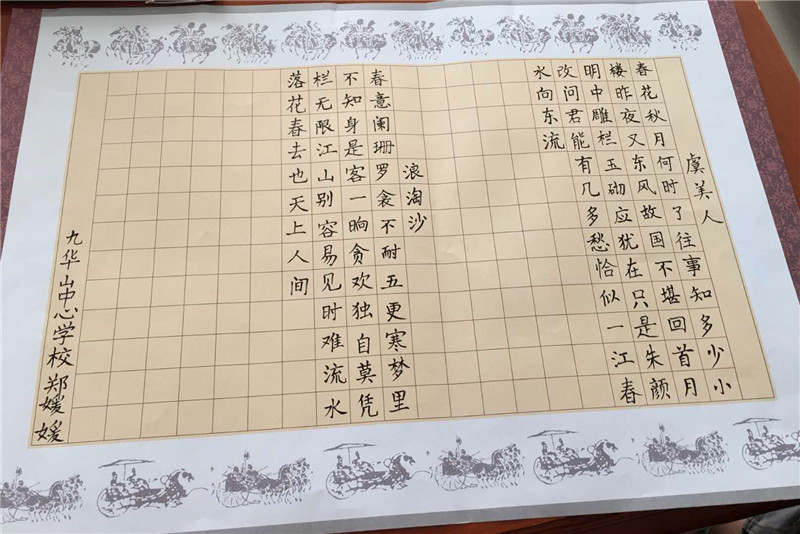 虞美人
春花秋月何时了往事知多少小
楼昨夜又东风故国不堪回首月
明中雕栏玉砌应犹在只是朱颜
改问君能有几多愁恰似一江春
水向东流
浪淘沙
春意阑珊罗衾不耐五更寒梦里
不知身是客一晌贪欢独自莫凭
栏无限江山别容易见时难流水
落花春去也天上人间
九华山中心学校 郑媛媛